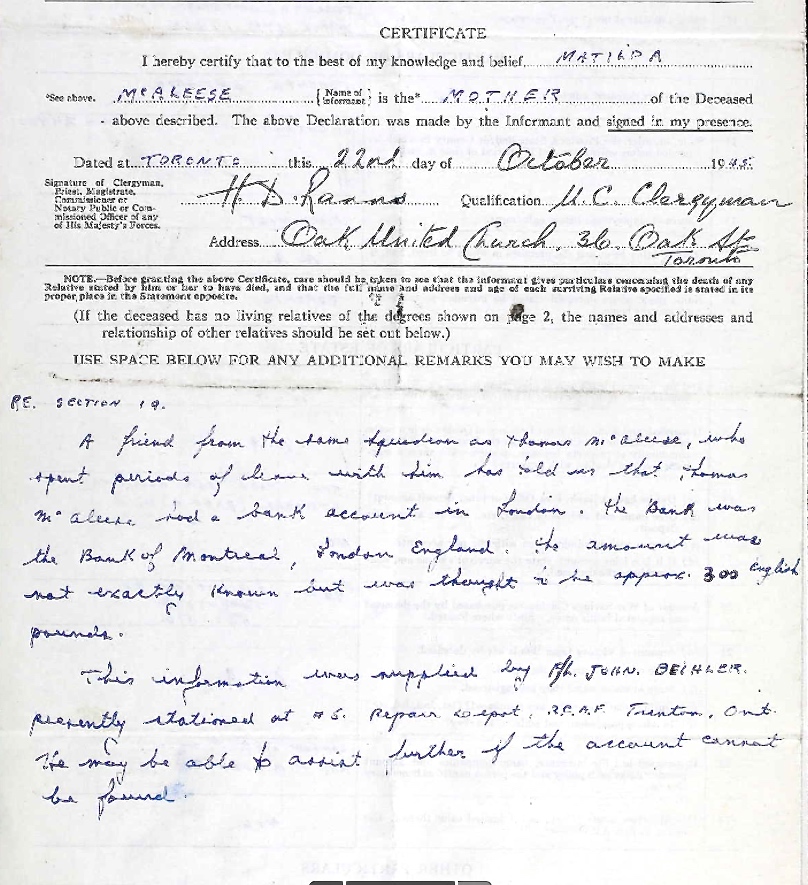 CERTIFICATE
I hereby certify that to the best of my knowledge and belief, MATILDA
*See above. McALEESE {Name of Informant} is the* MOTHER of the Deceased
above described. The above Declaration was made by the Informant and signed in my presence.
Dated at TORONTO this 22nd day of October 1945.
Signature of Clergyman,
Priest, Magistrate,
Commissioner or
Notary Public or Com-
missioned Officer of any
of His Majesty's Forces.
H. D. Qualification U.C. Clergyman
Address Oak United Church, 36 Oak St.
Toronto
NOTE.—Before granting the above Certificate, care should be taken to see that the informant gives particulars concerning the death of any
Relative stated by him or her to have died, and that the full name and address and age of each surviving Relative specified is stated in its
proper place in the Statement opposite.
(If the deceased has no living relatives of the degrees shown on page 2, the names and addresses and
relationship of other relatives should be set out below.)
USE SPACE BELOW FOR ANY ADDITIONAL REMARKS YOU MAY WISH TO MAKE
RE. SECTION 19.
A friend from the same squadron as Thomas McAleese, who
spent periods of leave with him has told us that Thomas
McAleese had a bank account in London. The Bank was
the Bank of Montreal, London England. The amount was
not exactly known but was thought to be approx. 300 English
pounds.
This information was supplied by F/L. JOHN. BEIHLER.
presently stationed at #6. Repair Depot, R.C.A.F. Trenton, Ont.
He may be able to assist further if the account cannot
be found.